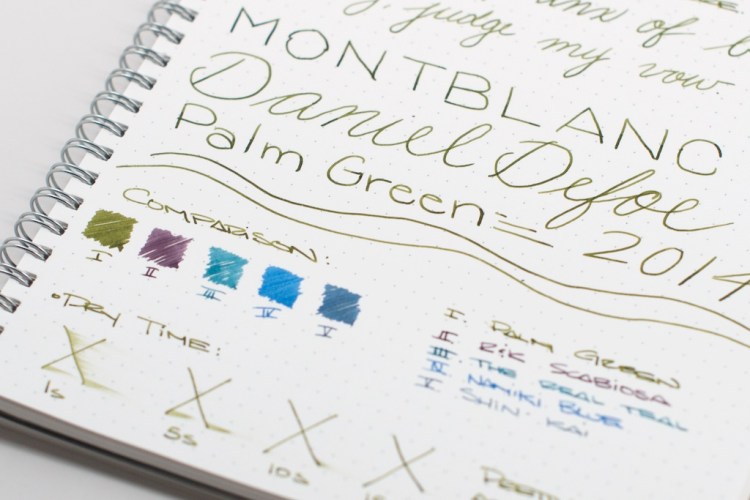 of
judge my vow
MONTBLANC
Daniel Defoe
Palm Green = 2014
COMPARISON:
I II III IV V
I. PALM GREEN
II R&K SCABIOSA
III THE REAL TEAL
IV NAMIKI BLUE
V SHIN-KAI
•DRY TIME:
1s 5s 10s